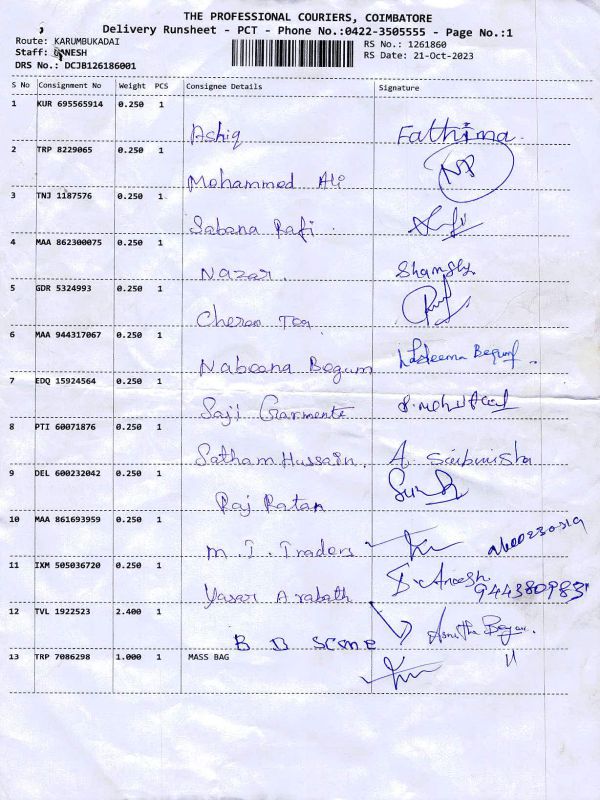 THE PROFESSIONAL COURIERS, COIMBATORE
Delivery Runsheet - PCT - Phone No.:0422-3505555 - Page No.:1
Route: KARUMBUKADAI
RS No.: 1261860
Staff: GANESH
RS Date: 21-Oct-2023
DRS No.: DCJB126186001
S No Consignment No Weight PCS Consignee Details Signature
1 KUR 695565914 0.250 1
Ashiq Fathima
2 TRP 8229065 0.250 1
Mohammed Ali NP
3 TNJ 1187576 0.250 1
Sabana Rafi
4 MAA 862300075 0.250 1
Nazar
5 GDR 5324993 0.250 1
Cheran Tea
6 MAA 944317067 0.250 1
Nabeena Begum Begum
7 EDQ 15924564 0.250 1
Saji Garments
8 PTI 60071876 0.250 1
Satham Hussain
9 DEL 600232042 0.250 1
Raj Ratan
10 MAA 861693959 0.250 1
M. I. Traders
11 IXM 505036720 0.250 1
Yasar Arabath
12 TVL 1922523 2.400 1
B B
13 TRP 7086298 1.000 1 MASS BAG